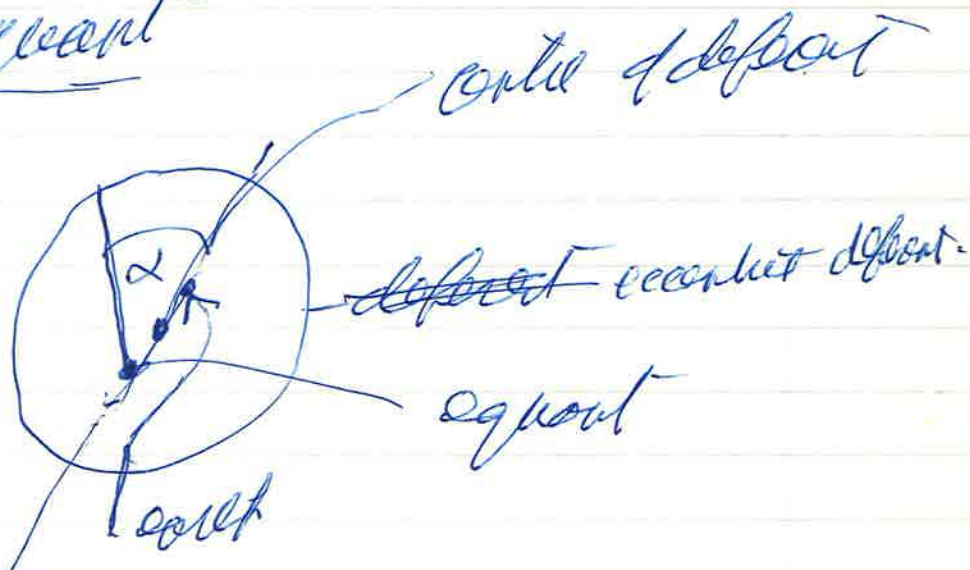 equant
centre of deferent
α
~~deferent~~ eccentric deferent.
equant
earth